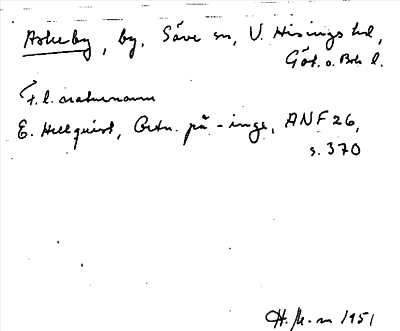 Askeby, by, Säve sn, V. Hisings hd,
Göt. o. Boh l.
F. l. osakernamn
E. Hellquist, Ortn. på -inge, ANF 26,
s. 370
H. M-m 1951